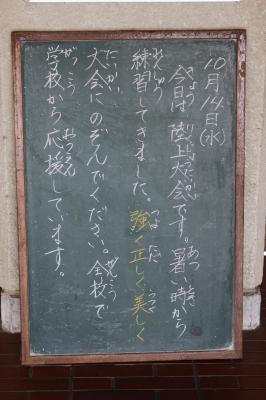 10月14日(水)
今日は陸上大会です。暑い時から
練習してきました。強く正しく美しく
大会にのぞんでください。全校で
学校から応援しています。